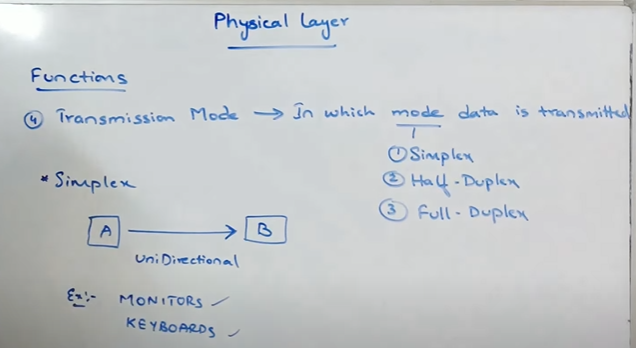 Physical Layer
Functions
④ Transmission Mode → In which mode data is transmitted
① Simplex
② Half-Duplex
③ Full-Duplex
* Simplex
A → B
UniDirectional
Ex:- MONITORS ✓
KEYBOARDS ✓